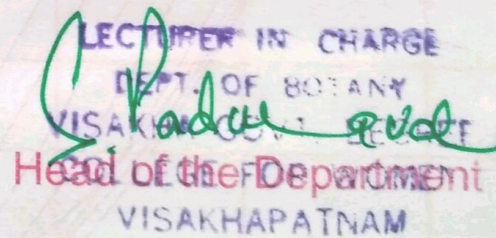 LECTURER IN CHARGE
DEPT. OF BOTANY
VISAKHA GOVT. DEGREE
COLLEGE FOR WOMEN
Head of the Department
VISAKHAPATNAM